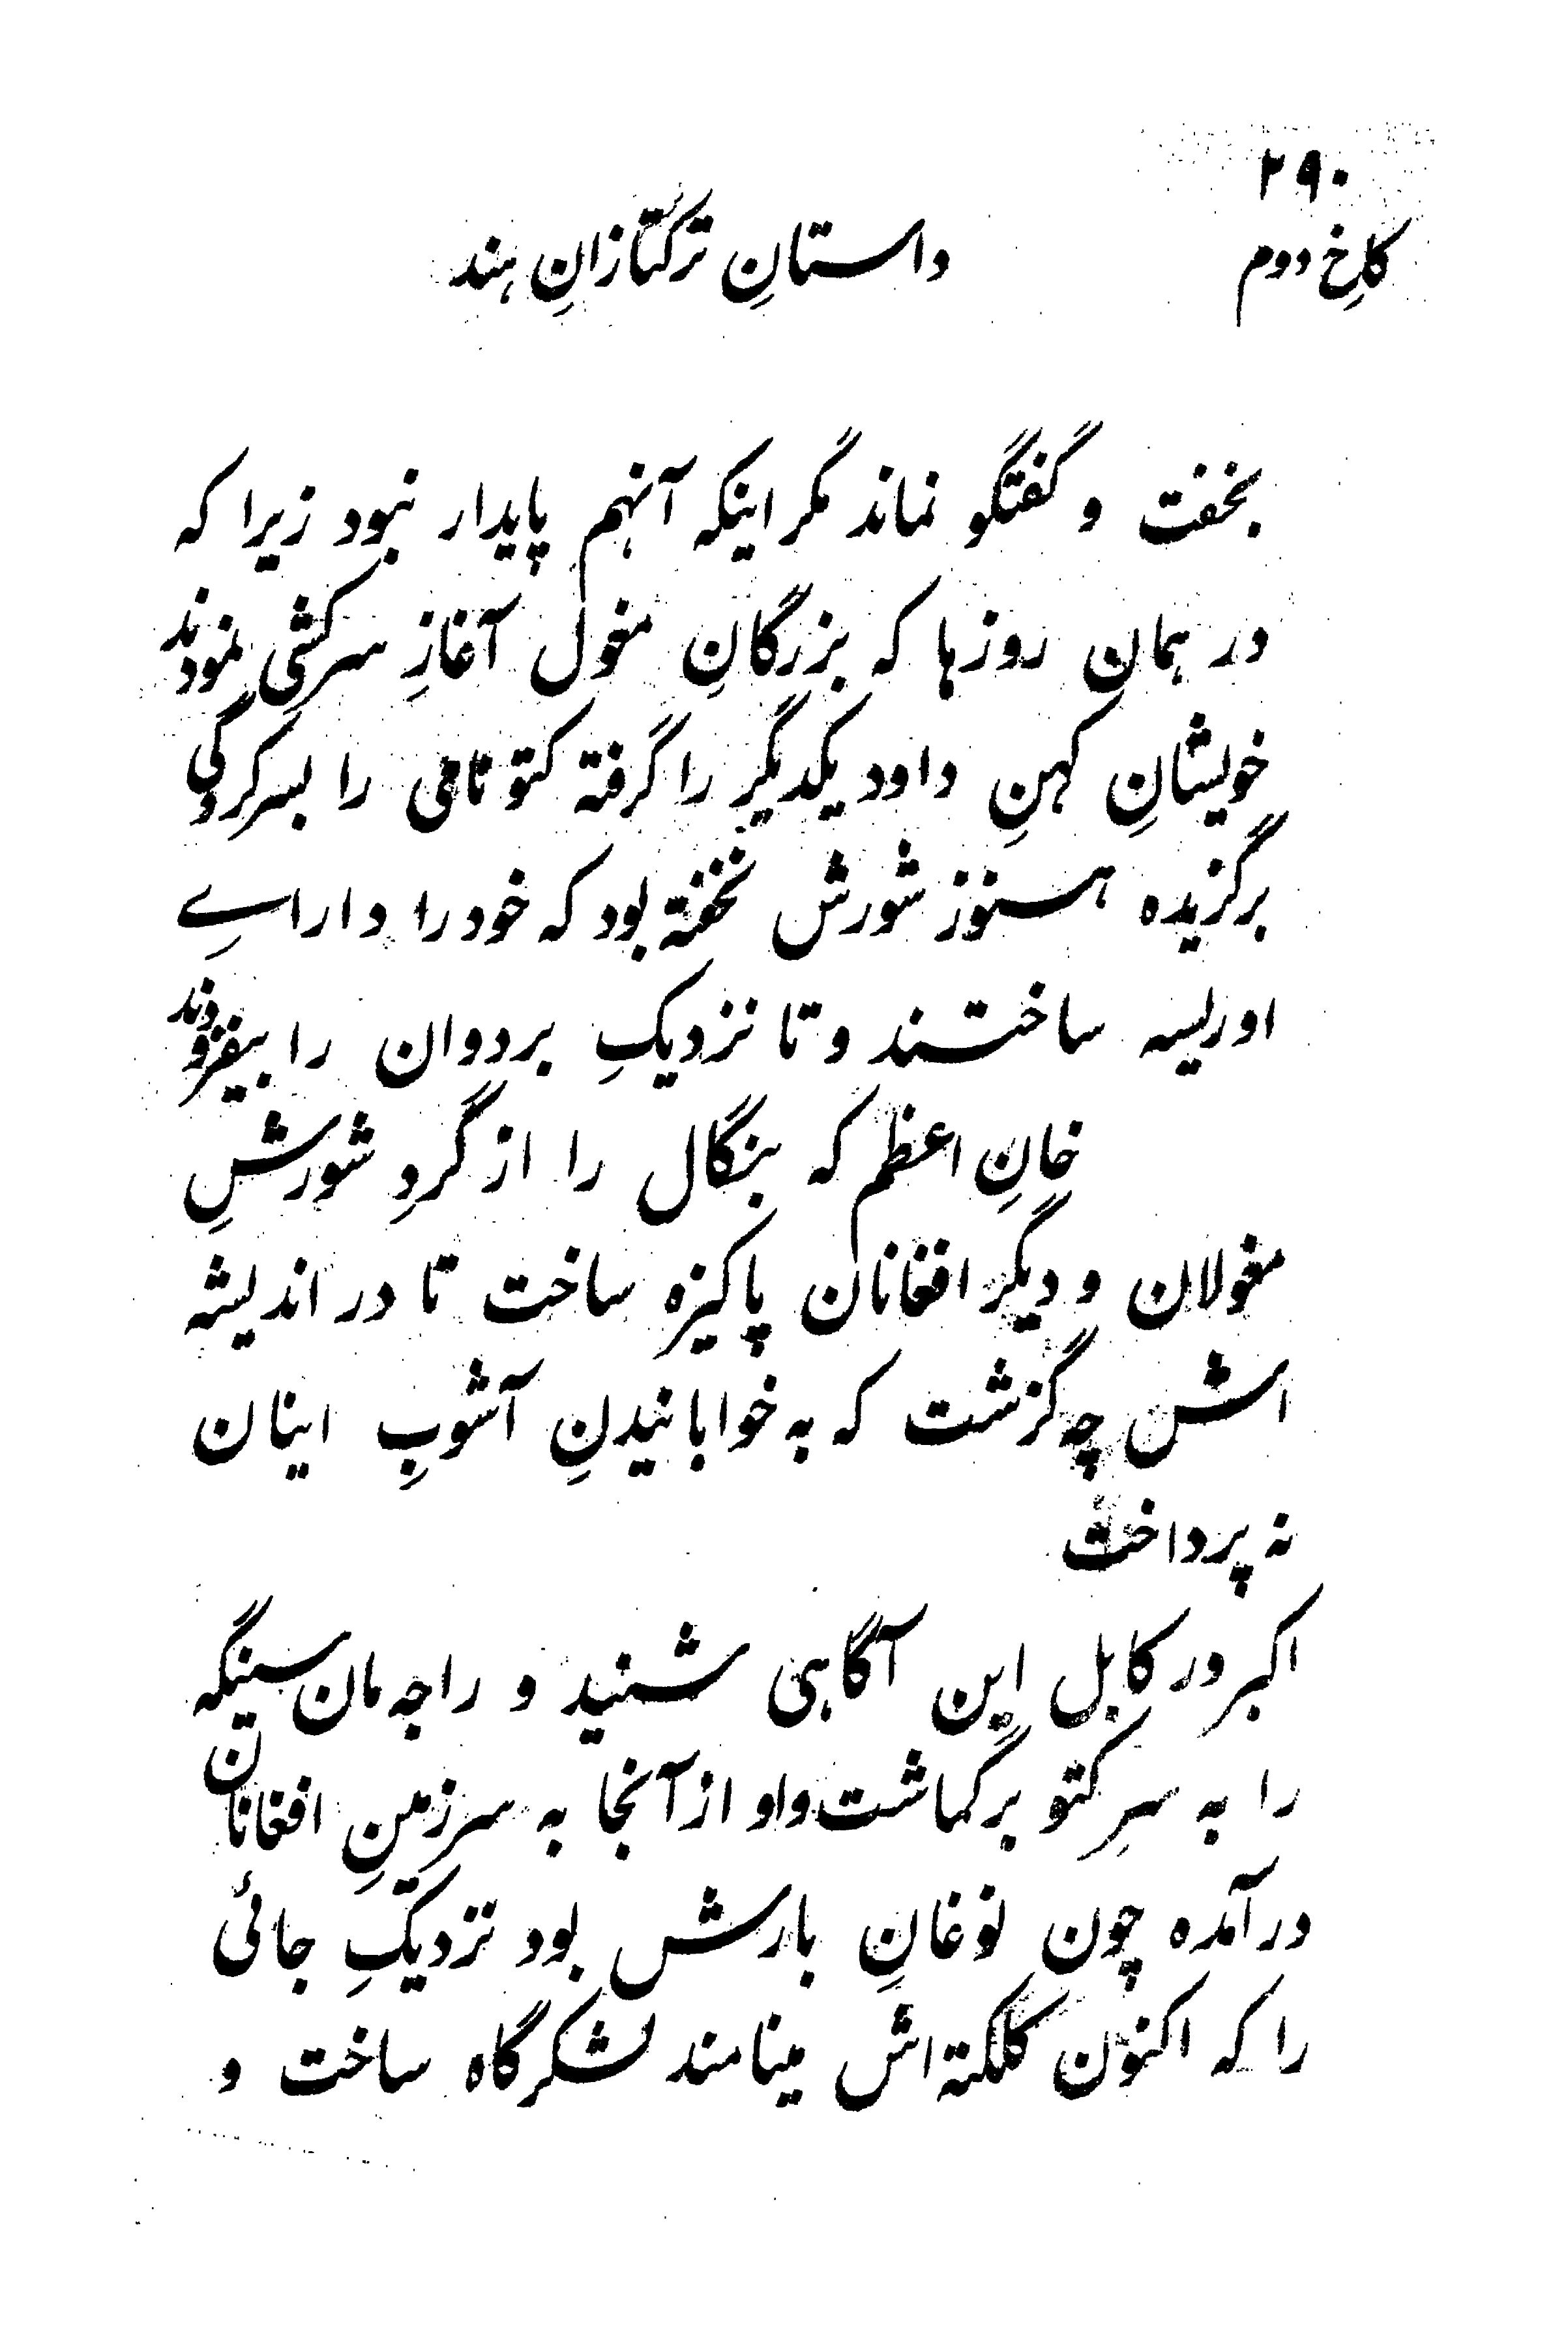 ۲۹۰
کاخِ دوم
داستانِ ترکتازانِ ہند
بخفت و گفتگو نماند مگر اینکہ آنہم پایدار نبود زیرا کہ
در ہمان روزہا کہ بزرگانِ مغول آغازِ سرکشی نمودند
خویشانِ کہنِ داود یکدیگر را گرفتہ کتو نامی را بسرکردگی
برگزیدہ ہنوز شورش نخفتہ بود کہ خود را داراے
اوریسہ ساختند و تا نزدیکِ بردوان را بیفزودند
خانِ اعظم کہ بنگال را از گردِ شورشِ
مغولان و دیگر افغانان پاکیزہ ساخت تا در اندیشہ
اش چہ گزشت کہ بہ خوابانیدنِ آشوبِ اینان
نہ پرداخت
اکبر در کابل این آگاہی شنید و راجہ مان سینگہ
را بہ سرِ کتو برگماشت و او از آنجا بہ سرزمینِ افغانان
درآمدہ چون نوغانِ بارش بود نزدیکِ جائی
را کہ اکنون کلکتہ اش مینامند لشکرگاہ ساخت و